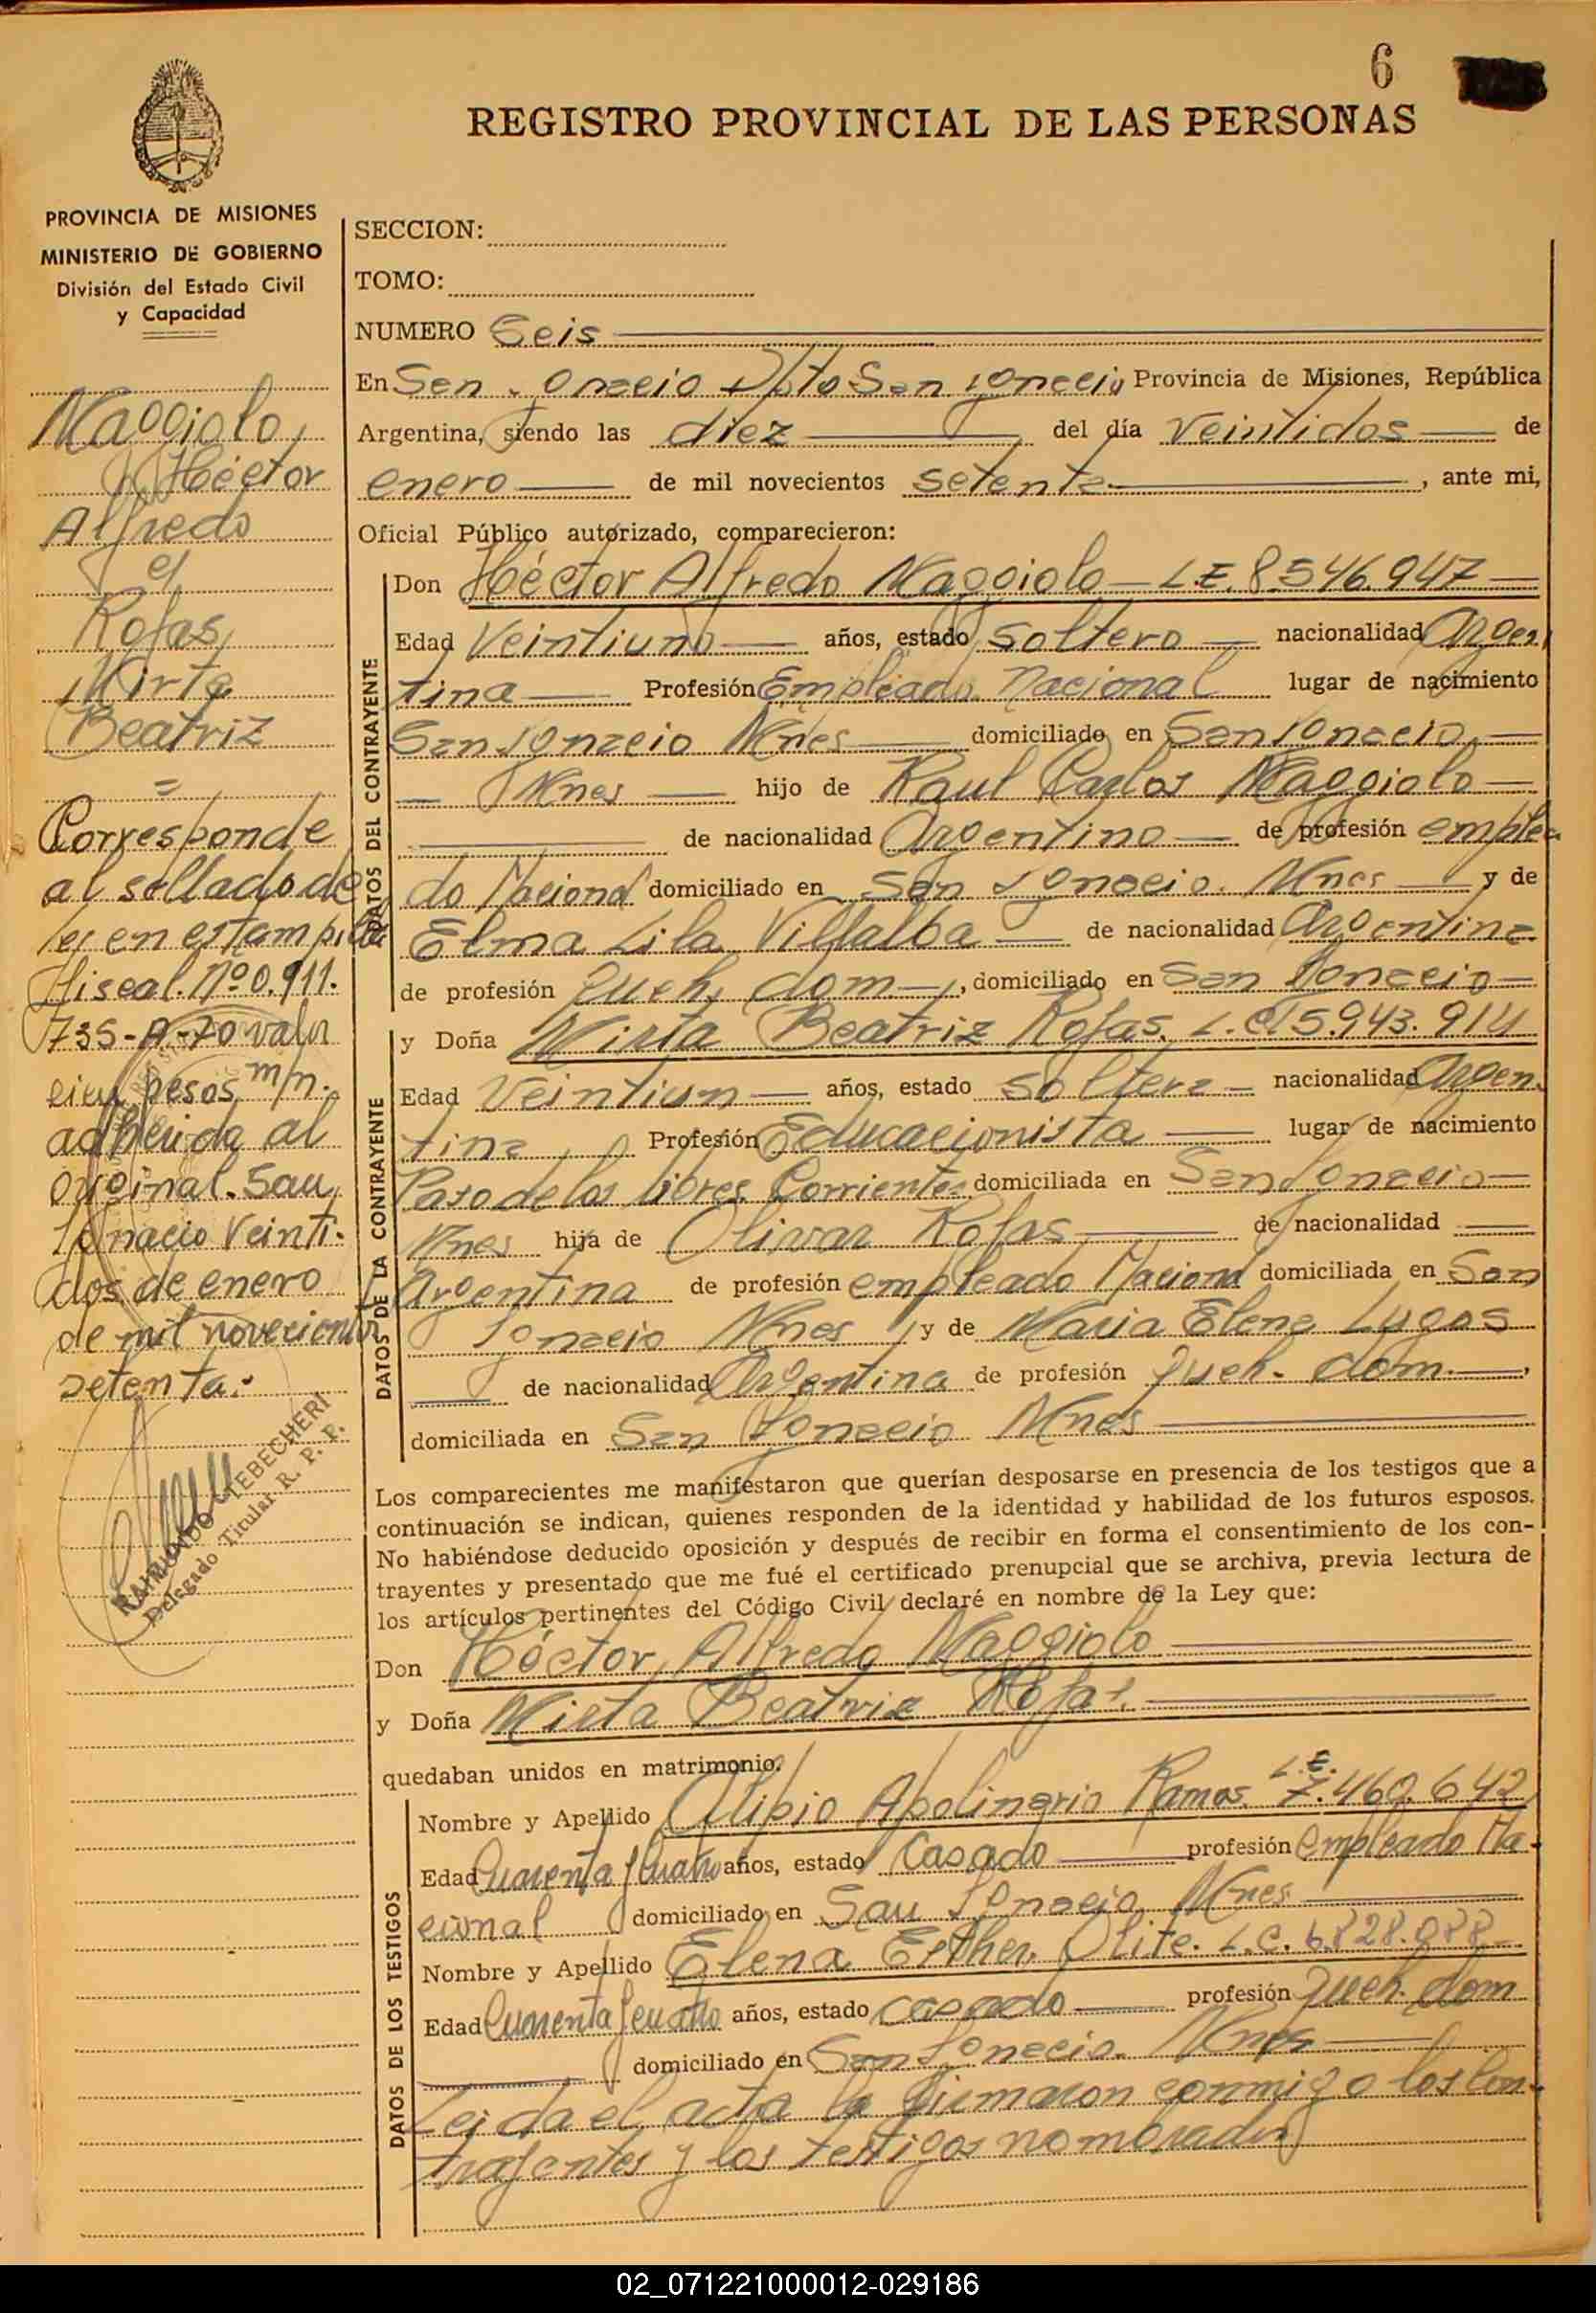 6
REGISTRO PROVINCIAL DE LAS PERSONAS
PROVINCIA DE MISIONES
MINISTERIO DE GOBIERNO
División del Estado Civil
y Capacidad
Maggiolo,
Héctor
Alfredo
c/
Rojas,
Mirta
Beatriz
=
Corresponde
al sellado de
ley en estampilla
fiscal. Nº 0.911.
735-A-70 valor
cien pesos m/n.
adherida al
original. San
Ignacio Veinti-
dos de enero
de mil novecientos
setenta.-
RAIMUNDO TEBECHERI
Delegado Titular R. P. P.
SECCION:
TOMO:
NUMERO Seis
En San Ignacio Dpto San Ignacio Provincia de Misiones, República
Argentina, siendo las diez del día Veintidos de
enero de mil novecientos setenta, ante mi,
Oficial Público autorizado, comparecieron:
DATOS DEL CONTRAYENTE
Don Héctor Alfredo Maggiolo L.E. 8.546.947
Edad Veintiuno años, estado soltero nacionalidad Argen
tina Profesión Empleado Nacional lugar de nacimiento
San Ignacio Mnes domiciliado en San Ignacio
Mnes hijo de Raul Carlos Maggiolo
de nacionalidad Argentino de profesión emplea
do Nacional domiciliado en San Ignacio. Mnes y de
Elma Lila Villalba de nacionalidad Argentina
de profesión queh. dom., domiciliado en San Ignacio
DATOS DE LA CONTRAYENTE
y Doña Mirta Beatriz Rojas. L.C. 5.943.914
Edad Veintiun años, estado soltera nacionalidad Argen.
tina Profesión Educacionista lugar de nacimiento
Paso de los libres Corrientes domiciliada en San Ignacio
Mnes hija de Olivar Rojas de nacionalidad
Argentina de profesión empleado Nacional domiciliada en San
Ignacio Mnes y de Maria Elena Lugos
de nacionalidad Argentina de profesión queh. dom.,
domiciliada en San Ignacio Mnes
Los comparecientes me manifestaron que querían desposarse en presencia de los testigos que a
continuación se indican, quienes responden de la identidad y habilidad de los futuros esposos.
No habiéndose deducido oposición y después de recibir en forma el consentimiento de los con-
trayentes y presentado que me fué el certificado prenupcial que se archiva, previa lectura de
los artículos pertinentes del Código Civil declaré en nombre de la Ley que:
Don Héctor Alfredo Maggiolo
y Doña Mirta Beatriz Rojas.
quedaban unidos en matrimonio.
DATOS DE LOS TESTIGOS
Nombre y Apellido Alipio Apolinario Ramos. L.E. 7.460.642
Edad Cuarenta y cuatro años, estado casado profesión empleado Na-
cional domiciliado en San Ignacio Mnes
Nombre y Apellido Elena Esther Olite. L.C. 6.828.088
Edad Cuarenta y cuatro años, estado casado profesión queh. dom
domiciliado en San Ignacio. Mnes
Leida el acta la firmaron conmigo los con-
trayentes y los testigos nombrados
02_071221000012-029186